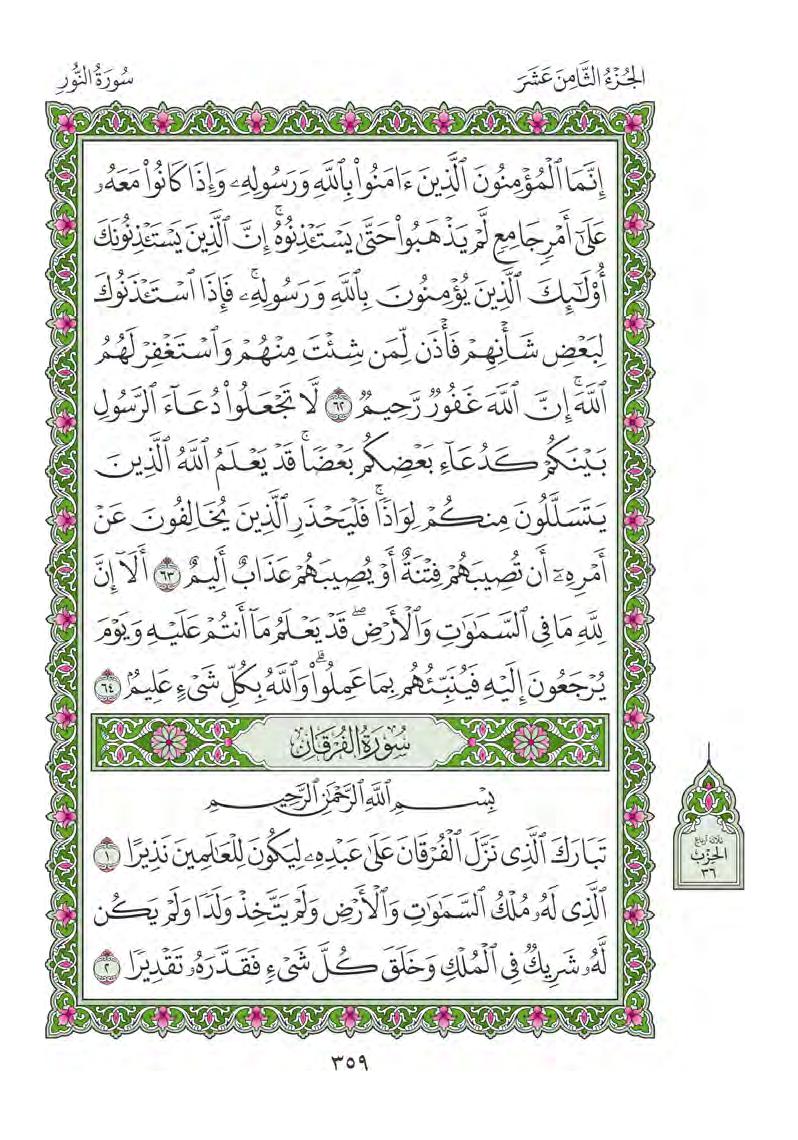 الجُزْءُ الثَّامِنَ عَشَرَ
سُورَةُ النُّورِ
إِنَّمَا ٱلْمُؤْمِنُونَ ٱلَّذِينَ ءَامَنُواْ بِٱللَّهِ وَرَسُولِهِۦ وَإِذَا كَانُواْ مَعَهُۥ
عَلَىٰٓ أَمْرٖ جَامِعٖ لَّمْ يَذْهَبُواْ حَتَّىٰ يَسْتَـْٔذِنُوهُۚ إِنَّ ٱلَّذِينَ يَسْتَـْٔذِنُونَكَ
أُوْلَٰٓئِكَ ٱلَّذِينَ يُؤْمِنُونَ بِٱللَّهِ وَرَسُولِهِۦۚ فَإِذَا ٱسْتَـْٔذَنُوكَ
لِبَعْضِ شَأْنِهِمْ فَأْذَن لِّمَن شِئْتَ مِنْهُمْ وَٱسْتَغْفِرْ لَهُمُ
ٱللَّهَۚ إِنَّ ٱللَّهَ غَفُورٞ رَّحِيمٞ ٦٢ لَّا تَجْعَلُواْ دُعَآءَ ٱلرَّسُولِ
بَيْنَكُمْ كَدُعَآءِ بَعْضِكُم بَعْضٗاۚ قَدْ يَعْلَمُ ٱللَّهُ ٱلَّذِينَ
يَتَسَلَّلُونَ مِنكُمْ لِوَاذٗاۚ فَلْيَحْذَرِ ٱلَّذِينَ يُخَالِفُونَ عَنْ
أَمْرِهِۦٓ أَن تُصِيبَهُمْ فِتْنَةٌ أَوْ يُصِيبَهُمْ عَذَابٌ أَلِيمٌ ٦٣ أَلَآ إِنَّ
لِلَّهِ مَا فِي ٱلسَّمَٰوَٰتِ وَٱلْأَرْضِۖ قَدْ يَعْلَمُ مَآ أَنتُمْ عَلَيْهِ وَيَوْمَ
يُرْجَعُونَ إِلَيْهِ فَيُنَبِّئُهُم بِمَا عَمِلُواْۗ وَٱللَّهُ بِكُلِّ شَيْءٍ عَلِيمٌ ٦٤
سُورَةُ الفُرْقَانِ
بِسْمِ ٱللَّهِ ٱلرَّحْمَٰنِ ٱلرَّحِيمِ
تَبَارَكَ ٱلَّذِي نَزَّلَ ٱلْفُرْقَانَ عَلَىٰ عَبْدِهِۦ لِيَكُونَ لِلْعَٰلَمِينَ نَذِيرًا ١
ٱلَّذِي لَهُۥ مُلْكُ ٱلسَّمَٰوَٰتِ وَٱلْأَرْضِ وَلَمْ يَتَّخِذْ وَلَدٗا وَلَمْ يَكُن
لَّهُۥ شَرِيكٞ فِي ٱلْمُلْكِ وَخَلَقَ كُلَّ شَيْءٖ فَقَدَّرَهُۥ تَقْدِيرٗا ٢
ثلاثة أرباع
الحِزْب
٣٦
٣٥٩